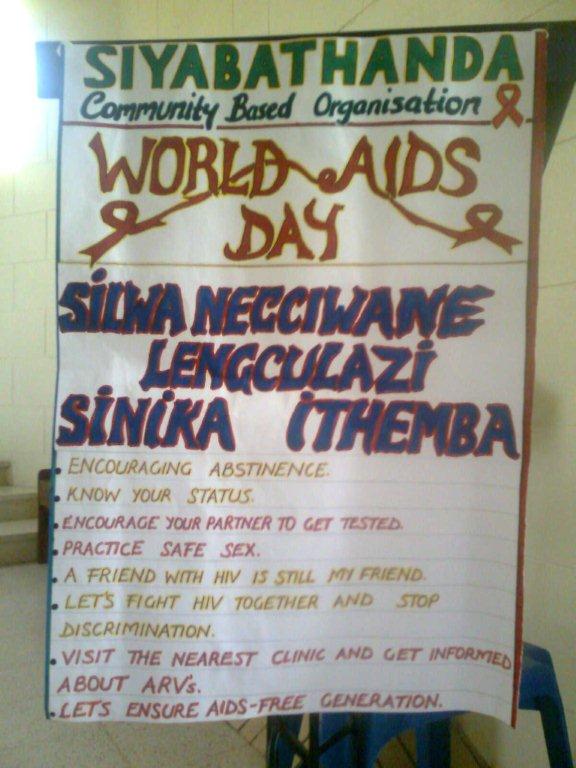 SIYABATHANDA
Community Based Organisation
WORLD AIDS
DAY
SILWA NEGCIWANE
LENGCULAZI
SINIKA ITHEMBA
• ENCOURAGING ABSTINENCE.
• KNOW YOUR STATUS.
• ENCOURAGE YOUR PARTNER TO GET TESTED.
• PRACTICE SAFE SEX.
• A FRIEND WITH HIV IS STILL MY FRIEND.
• LET'S FIGHT HIV TOGETHER AND STOP
DISCRIMINATION.
• VISIT THE NEAREST CLINIC AND GET INFORMED
ABOUT ARV's.
• LET'S ENSURE AIDS-FREE GENERATION.